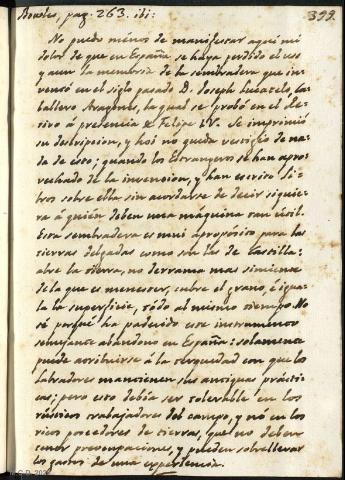 Bowles, pag. 263. ibi:
399.
No puedo menos de manifestar aqui mi
dolor de que en España se haya perdido el uso
y aun la memoria de la sembradera que in-
ventó en el siglo pasado D. Joseph Lucatelo, ca-
ballero Aragonés, la qual se probó en el Re-
tiro á presencia de Felipe IV. Se imprimió
su descripcion, y hoi no queda vestigio de na-
da de esto; quando los Estrangeros se han apro-
vechado de la invencion, y han escrito li-
bros sobre ella sin acordarse de decir siquie-
ra á quién deben una maquina tan útil.
Esta sembradera es mui aproposito para las
tierras delgadas como son las de Castilla:
abre la tierra, no derrama mas simiente
de la que es menester, cubre el grano, é igua-
la la superficie, todo al mismo tiempo. No
sé porqué ha padecido este instrumento
semejante abandono en España: solamente
puede atribuirse á la terquedad con que los
labradores mantienen sus antiguas práctic-
as; pero esto debia ser tolerable en los
rústicos trabajadores del campo, y nó en los
ricos poseedores de tierras, que no deben
tener preocupaciones, y pueden sobrellevar
los gastos de una experiencia.